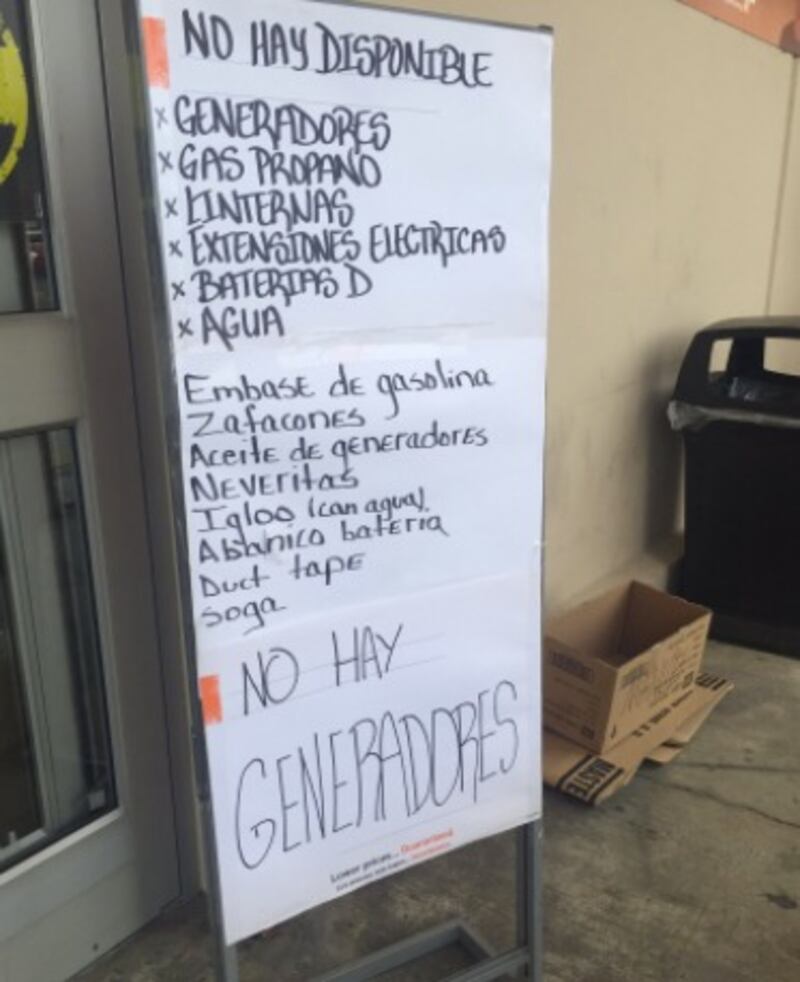 NO HAY DISPONIBLE
x GENERADORES
x GAS PROPANO
x LINTERNAS
x EXTENSIONES ELECTRICAS
x BATERIAS D
x AGUA
Embase de gasolina
Zafacones
Aceite de generadores
Neveritas
Igloo (can agua)
Abanico bateria
Duct tape
soga
NO HAY
GENERADORES
Lower prices... Guaranteed.